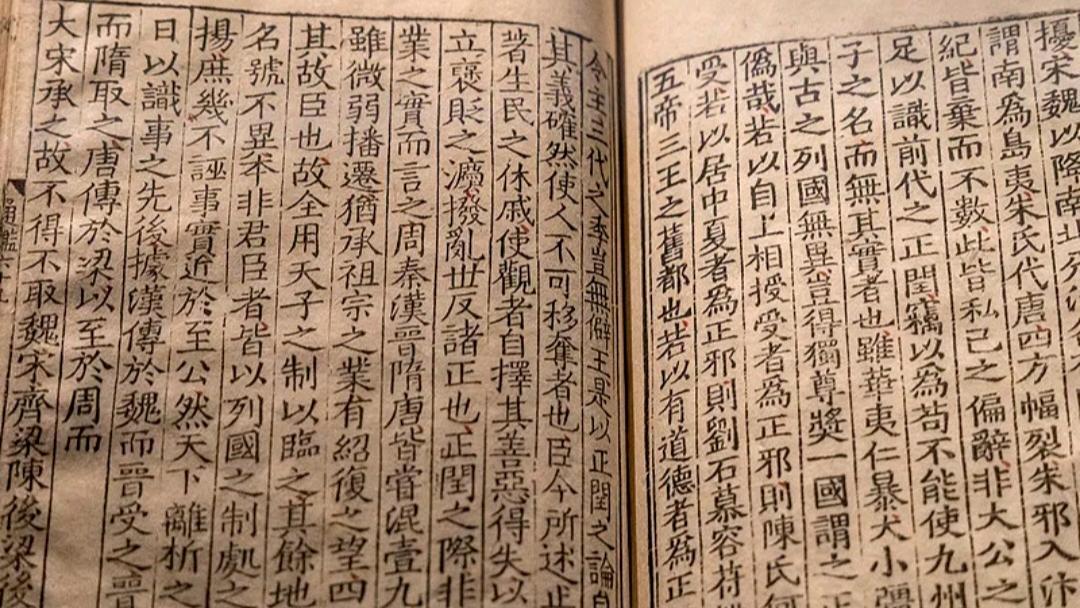 擾宋魏以降南北分
謂南為島夷朱氏代唐四方幅裂朱邪入汴
紀皆棄而不數此皆私己之偏辭非大公之
足以識前代之正閏竊以為苟不能使九州
子之名而無其實者也雖華夷仁暴大小
與古之列國無異豈得獨尊奬一國謂之
偽哉若以自上相授受者為正邪則陳氏何
受若以居中夏者為正邪則劉石慕容苻
五帝三王之舊都也若以有道德者為正
今主三代之季豈無僻王是以正閏之論自
其義確然使人不可移奪者也臣今所述止
著生民之休戚使觀者自擇其善惡得失以
立褒貶之濿撥亂世反諸正也正閏之際非
業之實而言之周秦漢晉隋唐皆嘗混壹九
雖微弱播遷猶承祖宗之業有紹復之望四
其故臣也故全用天子之制以臨之其餘地
名號不異夲非君臣者皆以列國之制處之
揚庶幾不誣事實近於至公然天下離析之
日以識事之先後據漢傳於魏而晉受之晉
而隋取之唐傳於梁以至於周而
大宋承之故不得不取魏宋齊梁陳後梁後
通鑑六十九